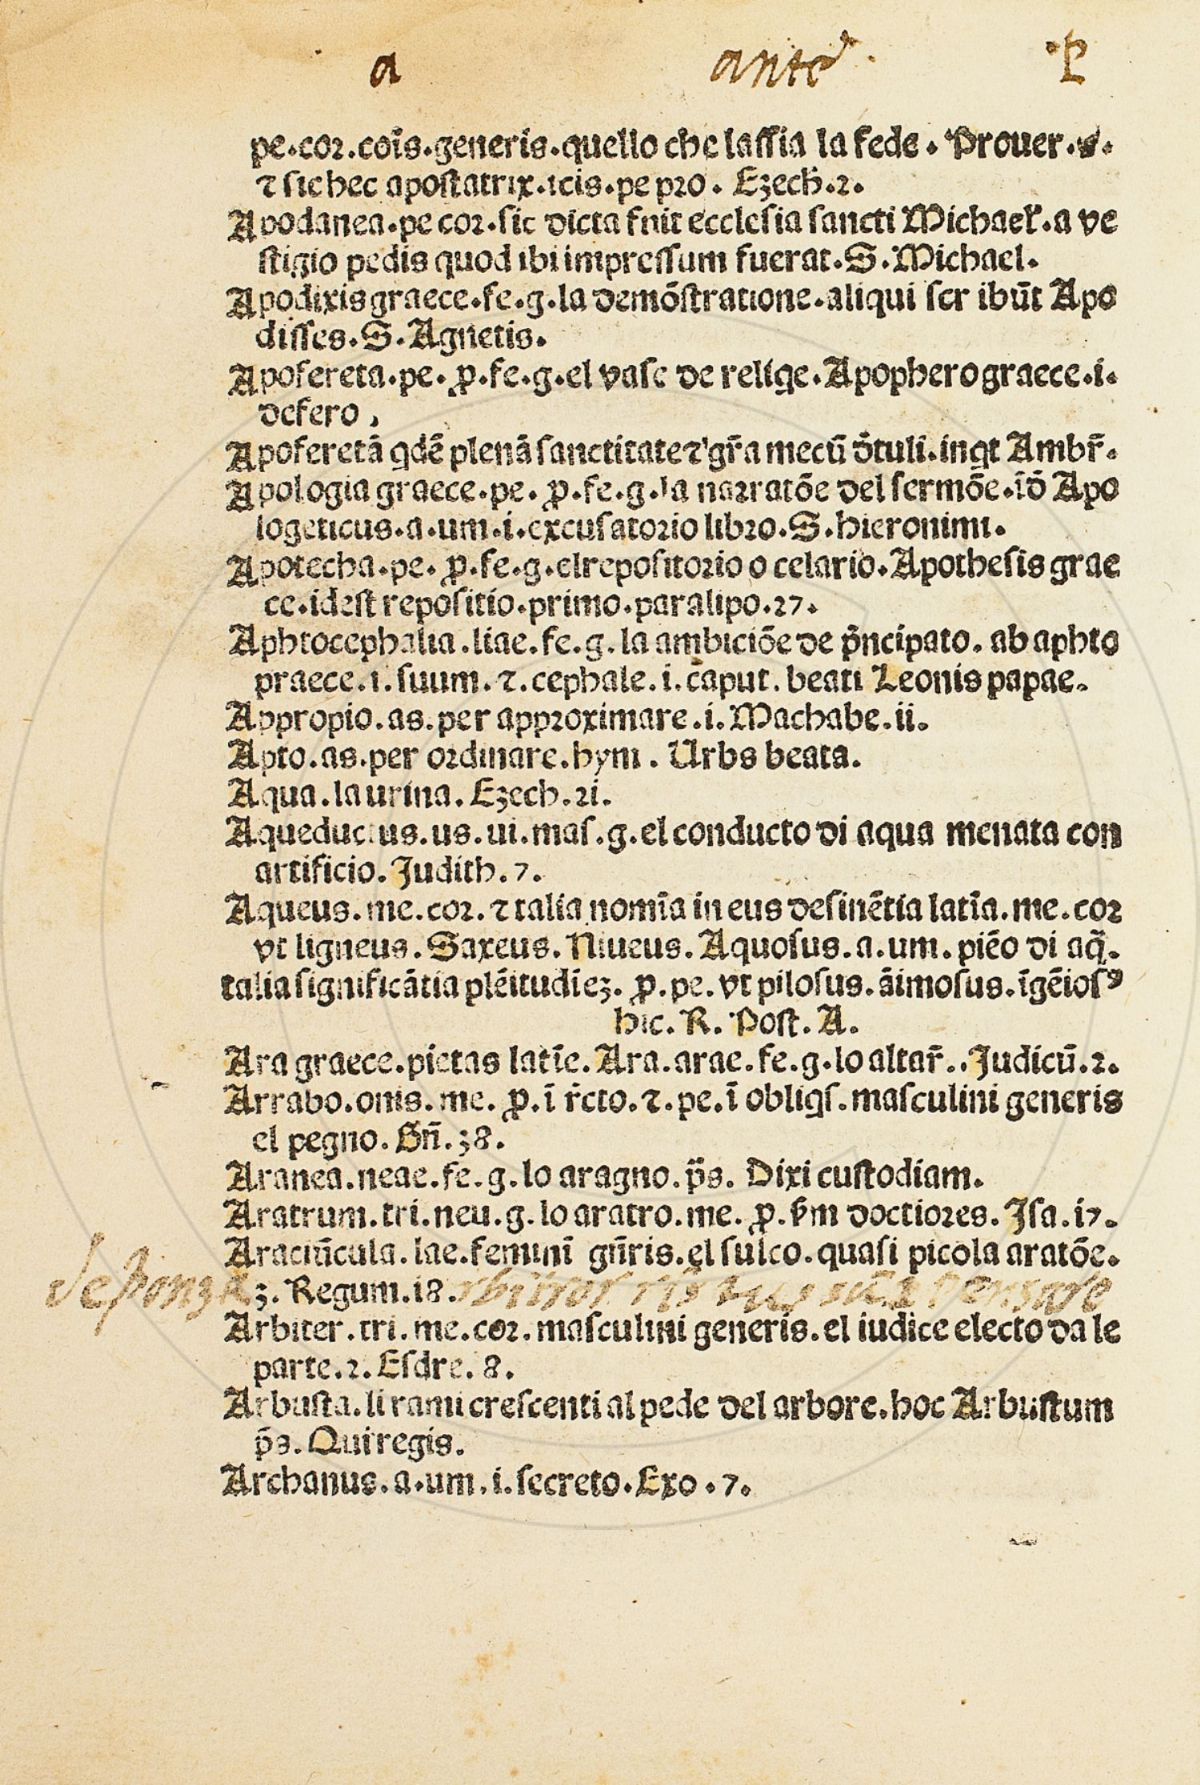 a ante P
pe.cor.coīs.generis.quello che lassia la fede. Prouer.
⁊ sic hec apostatrix.icis.pe pro. Ezech̄.2.
Apodanea.pe cor.sic dicta fuit ecclesia sancti Michael̄.a ve
stigio pedis quod ibi impressum fuerat.S.Michael.
Apodixis graece.fe.g.la demōstratione.aliqui scribūt Apo
disses.S.Agnetis.
Apofereta.pe.ꝓ.fe.g.el vase de reliqe.Apophero graece.i.
defero,
Apoferetā qdē plenā sanctitate ⁊ gr̄a mecū ꝯtuli.inqt Ambr̄.
Apologia graece.pe.ꝓ.fe.g.la narratōe del sermōe.īō Apo
logeticus.a.um.i.excusatorio libro.S.hieronimi.
Apotecha.pe.ꝓ.fe.g.el repositorio o celario.Apothesis grae
ce.idest repositio.primo.paralipo.27.
Aphtocephalia.liae.fe.g.la ambiciōe de p̄ncipato.ab aphto
praece.i.suum.⁊.cephale.i.caput.beati Leonis papae.
Appropio.as.per approximare.i.Machabe.ii.
Apto.as.per ordinare.hym.Urbs beata.
Aqua.la urina.Ezech.21.
Aqueductus.us.ui.mas.g.el conducto di aqua menata con
artificio.Judith.7.
Aqueus.me.cor.⁊ talia nomīa in eus desinētia latīa.me.cor
vt ligneus.Saxeus.Niueus.Aquosus.a.um.piēo di aq̄.
talia significātia plēitudīeꝫ.ꝓ.pe.vt pilosus.āimosus.īgēiosꝰ
hic.R.Post.A.
Ara graece.pietas latīe.Ara.arae.fe.g.lo altar̄..Judicū.2.
Arrabo.onis.me.ꝓ.ī r̄cto.⁊.pe.ī obliqs.masculini generis
el pegno.Gn̄.38.
Aranea.neae.fe.g.lo aragno.p̄s. Dixi custodiam.
Aratrum.tri.neu.g.lo aratro.me.ꝓ.ẜm doctiores.Isa.17.
Araciūcula.lae.feminī gn̄ris.el sulco.quasi picola aratōe.
3.Regum.18.
Arbiter.tri.me.cor.masculini generis.el iudice electo da le
parte.2.Esdre.8.
Arbusta.li rami crescenti al pede del arbore.hoc Arbustum
p̄s.Qui regis.
Archanus.a.um.i.secreto.Exo.7.